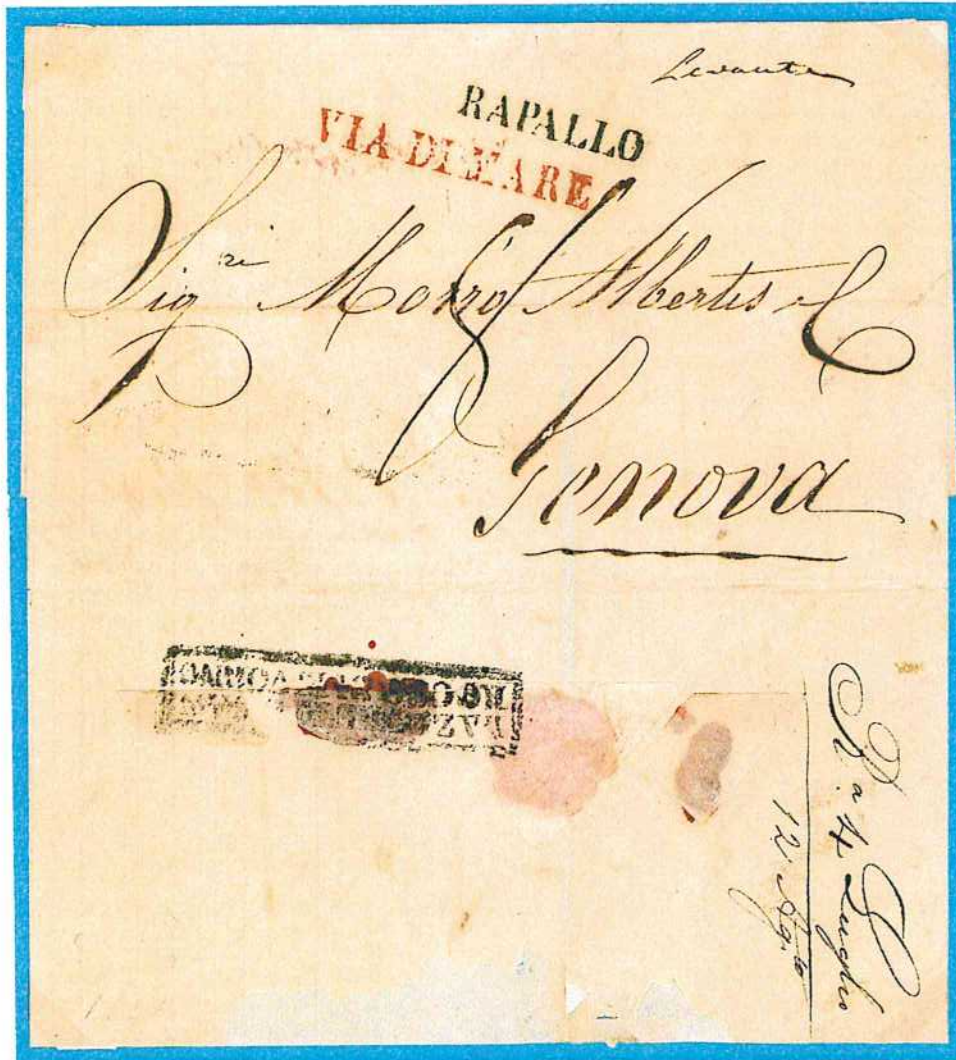 Levante
RAPALLO
VIA DI MARE
Sig.ri Morro Albertis e C
Genova
R. a 4 Luglio
12 Ag.to